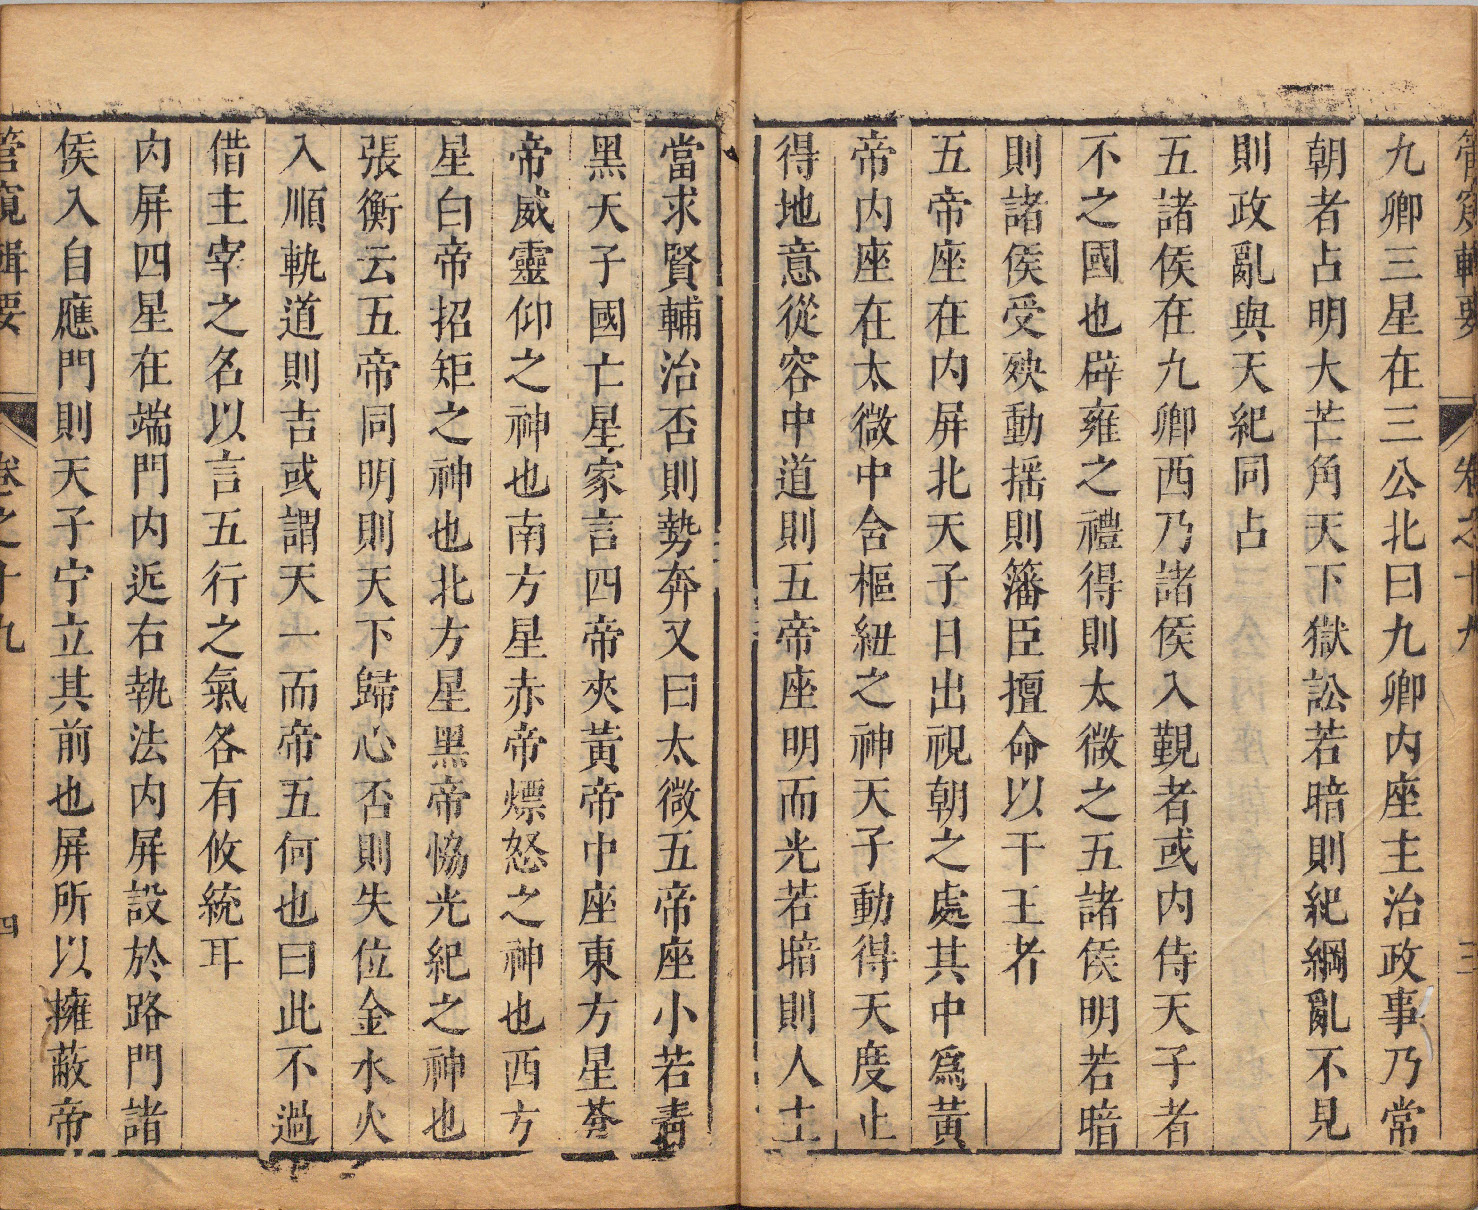 管窺輯要 卷之十九 三
九卿三星在三公北曰九卿内座主治政事乃常
朝者占明大芒角天下獄訟若暗則紀綱亂不見
則政亂與天紀同占
五諸侯在九卿西乃諸侯入觀者或内侍天子者
不之國也辟雍之禮得則太微之五諸侯明若暗
則諸侯受殃動摇則籓臣擅命以干王者
五帝座在内屏北天子日出視朝之處其中爲黃
帝内座在太微中含樞紐之神天子動得天度止
得地意從容中道則五帝座明而光若暗則人主
當求賢輔治否則勢奔又曰太微五帝座小若青
黑天子國亡星家言四帝夾黃帝中座東方星蒼
帝威靈仰之神也南方星赤帝熛怒之神也西方
星白帝招矩之神也北方星黑帝恊光紀之神也
張衡云五帝同明則天下歸心否則失位金水火
入順軌道則吉或謂天一而帝五何也曰此不過
借主宰之名以言五行之氣各有攸統耳
内屏四星在端門内近右執法内屏設於路門諸
侯入自應門則天子宁立其前也屏所以擁蔽帝
管窺輯要 卷之十九 四